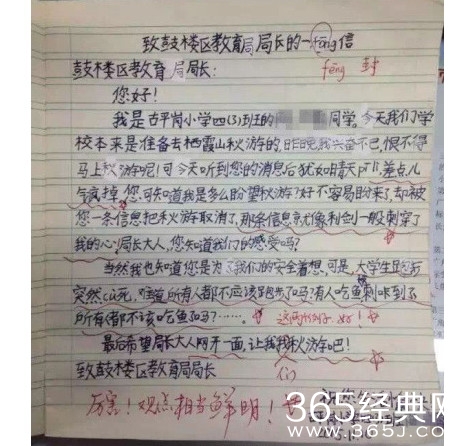 致鼓楼区教育局局长的一fēng信
fēng 封
鼓楼区教育局局长:
您好!
我是古平岗小学四(3)班的 同学。今天我们学
校本来是准备去栖霞山秋游的,昨晚我兴奋不已,恨不得
马上秋游呢!可今天听到您的消息后犹如晴天pī lì,差点儿
气疯掉。您可知道我是多么盼望秋游?好不容易盼来了,却被
您一条信息把秋游取消了,那条信息就像利剑一般刺穿了
我的心!局长大人,您知道我们的感受吗?
当然我也知道您是为了我们的安全着想,可是,大学生跑步
突然cù死,难道所有人都不应该跑步了吗?有人吃鱼刺咔到了,
所有都不该吃鱼了吗?……。 这两个例子好!
最后希望局长大人网开一面,让我秋游吧!
们
致鼓楼区教育局局长
厉害!观点相当鲜明!
365经典网
www.365j.com